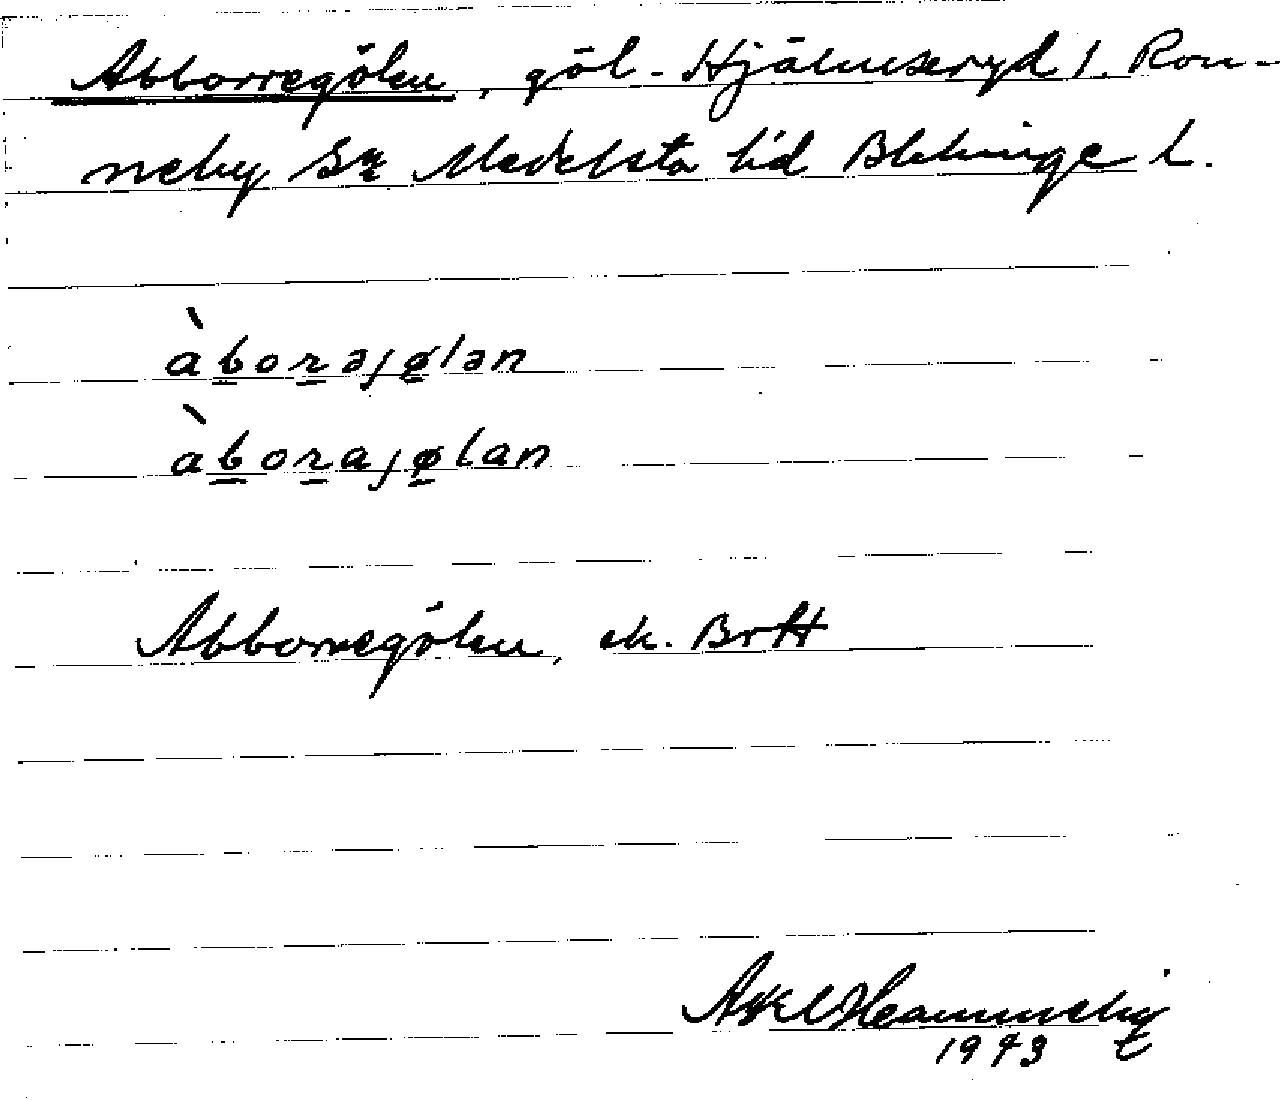 Abborregölen, göl - Hjälmseryd 1. Ron-
neby Sn Medelsta hd Blekinge l.
àborəjølən
àborajølan
Abborregölen, ek. BrH
Axel Hammeby
1943